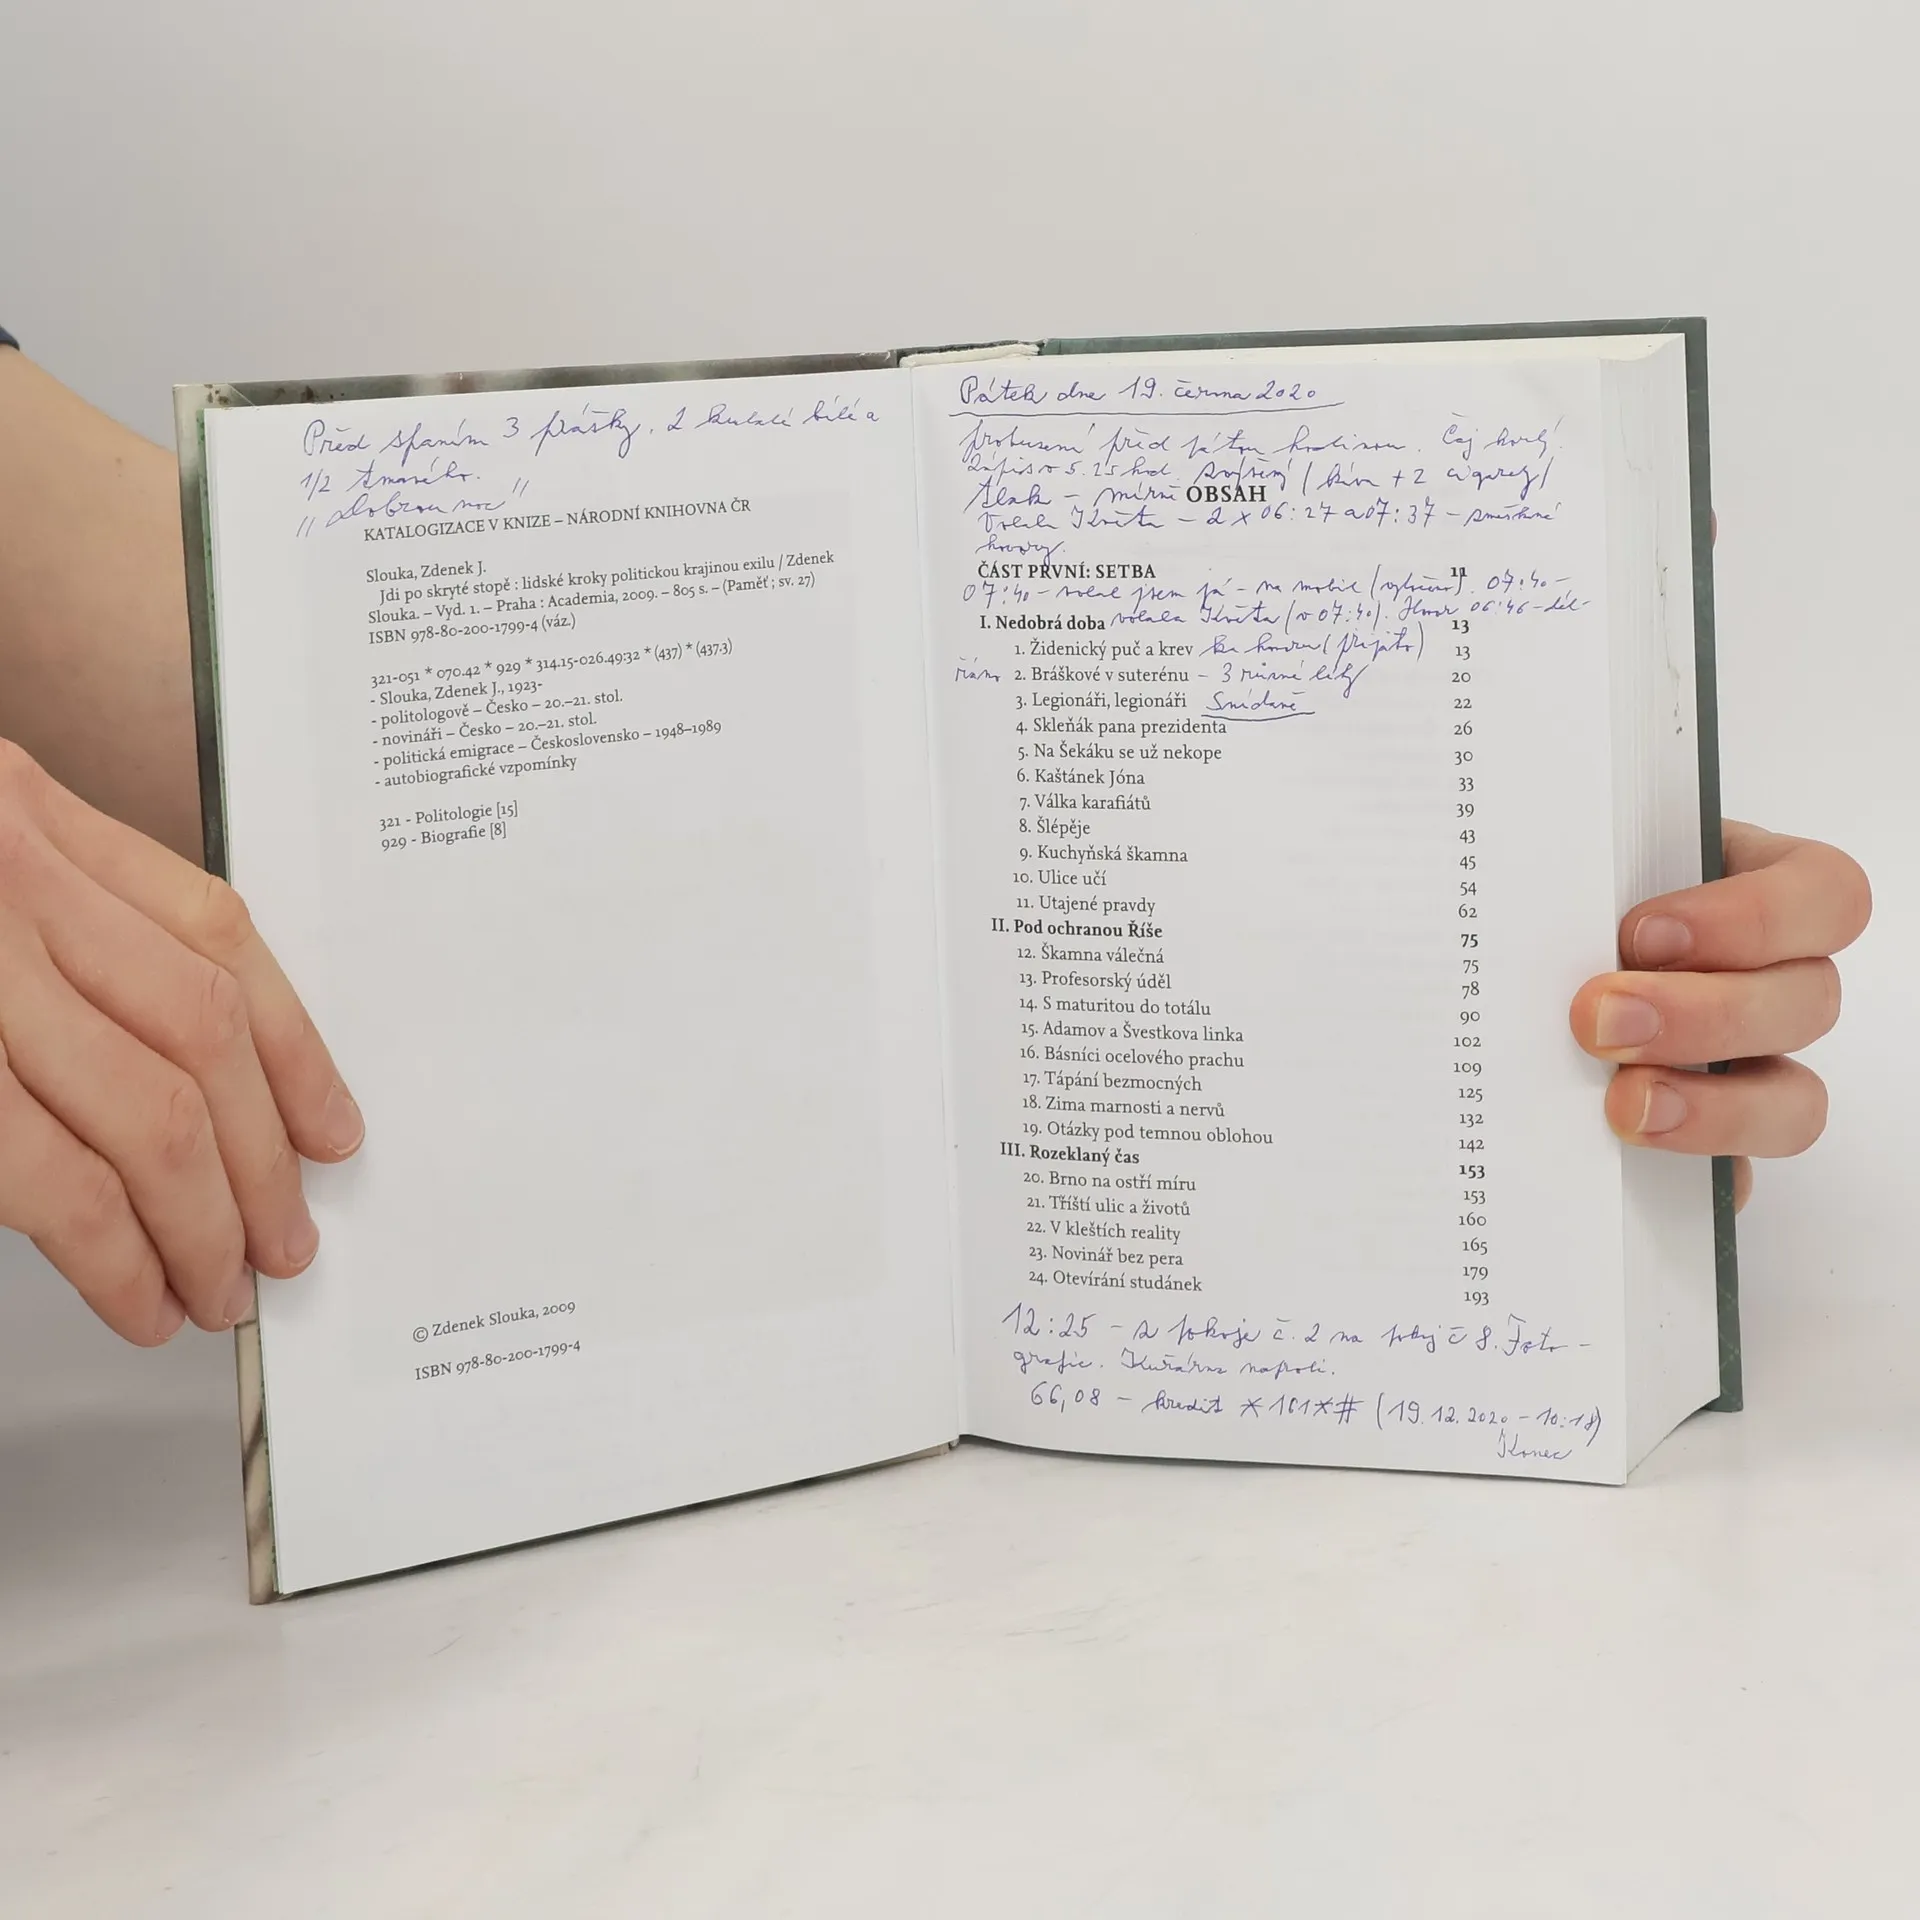 Před spaním 3 prášky, 2 kulaté bílé a
1/2 tmavého.
"Dobrou noc"
KATALOGIZACE V KNIZE – NÁRODNÍ KNIHOVNA ČR
Slouka, Zdenek J.
Jdi po skryté stopě : lidské kroky politickou krajinou exilu / Zdenek
Slouka. – Vyd. 1. – Praha : Academia, 2009. – 805 s. – (Paměť ; sv. 27)
ISBN 978-80-200-1799-4 (váz.)
321-051 * 070.42 * 929 * 314.15-026.49:32 * (437) * (437.3)
- Slouka, Zdenek J., 1923-
- politologové – Česko – 20.–21. stol.
- novináři – Česko – 20.–21. stol.
- politická emigrace – Československo – 1948–1989
- autobiografické vzpomínky
321 - Politologie [15]
929 - Biografie [8]
© Zdenek Slouka, 2009
ISBN 978-80-200-1799-4
Pátek dne 19. června 2020
probuzení před pátou hodinou. Čaj horký.
Zápis v 5.25 hod. (káva + 2 cigarety)
Tlak – mírně
OBSAH
Volala Květa – 2 x 06:27 a 07:37 – zmeškané
hovory.
ČÁST PRVNÍ: SETBA 11
07:40 – volal jsem já – na mobil 07:40 –
volala Květa (v 07:40). Hovor 06:46 – dél-
I. Nedobrá doba 13
1. Židenický puč a krev 13
ka hovoru (přijato)
2. Bráškové v suterénu 20
ráno – 3 různé léky
3. Legionáři, legionáři 22
Snídaně
4. Skleňák pana prezidenta 26
5. Na Šekáku se už nekope 30
6. Kaštánek Jóna 33
7. Válka karafiátů 39
8. Šlépěje 43
9. Kuchyňská škamna 45
10. Ulice učí 54
11. Utajené pravdy 62
II. Pod ochranou Říše 75
12. Škamna válečná 75
13. Profesorský úděl 78
14. S maturitou do totálu 90
15. Adamov a Švestkova linka 102
16. Básníci ocelového prachu 109
17. Tápání bezmocných 125
18. Zima marnosti a nervů 132
19. Otázky pod temnou oblohou 142
III. Rozeklaný čas 153
20. Brno na ostří míru 153
21. Tříští ulic a životů 160
22. V kleštích reality 165
23. Novinář bez pera 179
24. Otevírání studánek 193
12:25 – z pokoje č. 2 na pokoj č 8. Foto-
grafie. Kuřárna naproti.
66,08 – kredit *101*# (19.12.2020 – 10:18)
Konec